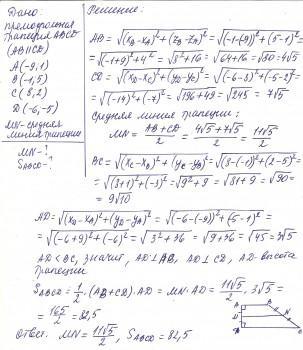 Дано:
прямоугольная
трапеция ABCD
(AB||CD)
A(-9,1)
B(-1,5)
C(8,2)
D(-6,-5)
MN - средняя
линия трапеции
MN-?
S_ABCD-?
Решение:
AB = √((x_B-x_A)²+(y_B-y_A)²) = √((-1-(-9))²+(5-1)²) =
= √((-1+9)²+4²) = √(8²+16) = √(64+16) = √80 = 4√5
CD = √((x_D-x_C)²+(y_D-y_C)²) = √((-6-8)²+(-5-2)²) =
= √((-14)²+(-7)²) = √(196+49) = √245 = 7√5
Средняя линия трапеции:
MN = (AB+CD)/2 = (4√5+7√5)/2 = 11√5/2
BC = √((x_C-x_B)²+(y_C-y_B)²) = √((8-(-1))²+(2-5)²) =
= √((8+1)²+(-3)²) = √(9²+9) = √(81+9) = √90 =
= 9√10
AD = √((x_D-x_A)²+(y_D-y_A)²) = √((-6-(-9))²+(-5-1)²) =
= √((-6+9)²+(-6)²) = √(3²+36) = √(9+36) = √45 = 3√5
AD < BC, значит, AD⊥AB, AD⊥CD, AD-высота
трапеции
S_ABCD = 1/2·(AB+CD)·AD = MN·AD = 11√5/2 · 3√5 =
= 165/2 = 82,5
Ответ: MN = 11√5/2, S_ABCD = 82,5